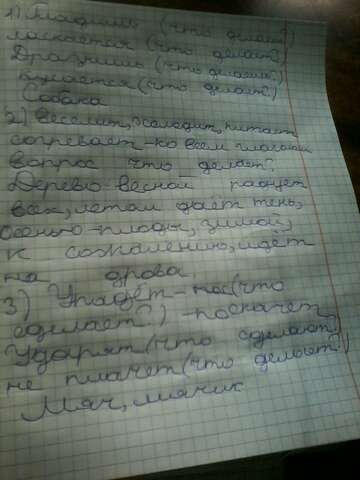 1) Гладишь (что делаешь?)
ласкается (что делает?)
Дразнишь (что делаешь?)
кусается (что делает?)
Собака
2.) Веселит, холодит, питает
согревает - ко всем глаголам
вопрос что делает?
Дерево весной радует
всех, летом даёт тень,
осенью - плоды, зимой,
к сожалению, идёт
на дрова.
3) Упадёт - (что
сделает?) - поскачет
Ударят (что сделают)
не плачет (что делает?)
Мяч, мячик